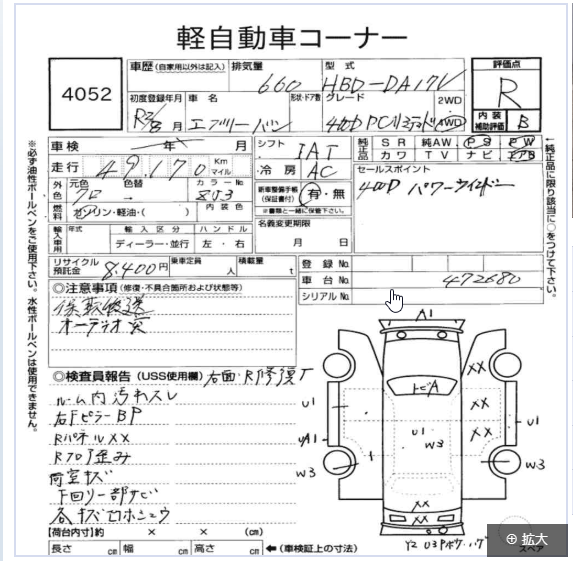 軽自動車コーナー
4052
車歴(自家用以外は記入)
排気量 660
型式 HBD-DA17V
評価点 R
内装補助評価 B
初度登録年月 R2/8月
車名 エブリーバン
形状・ドア数
グレード 4WD PCリミテッド
2WD 4WD
車検 年 月
シフト IAT
純正品 SR 純AW PS PW
カワ TV ナビ エアB
走行 49,170 Km マイル
冷房 AC
セールスポイント
4WD パワーウィンドー
外色 元色 色替 カラーNo.
燃料 ガソリン・軽油・( ) 内装色
新車整備手帳(保証書付) 有・無
※書類と一緒に保管下さい。
名義変更期限
月 日
輸入車用 年式 輸入区分 ハンドル
ディーラー・並行 左・右
リサイクル預託金 8,400円
乗車定員 人
積載量 t
登録No.
車台No. 472680
シリアルNo.
◎注意事項(修復・不具合箇所および状態等)
保取後送
オーディオ欠
◎検査員報告(USS使用欄) 右面・R修復
ルーム内汚れスレ
右FピラーBP
RパネルXX
Rフロア歪み
荷室キズ
下回り一部サビ
各キズ
【荷台内寸】約 × × (cm)
長さ cm 幅 cm 高さ cm ←(車検証上の寸法)
※必ず油性ボールペンをご使用下さい。水性ボールペンは使用できません。
↑純正品に限り該当に○をつけて下さい。
A1
トビA
XX
XX
XX
U1
U1
U1
A1
W3
W3
W3
XX
XX
スペア
拡大